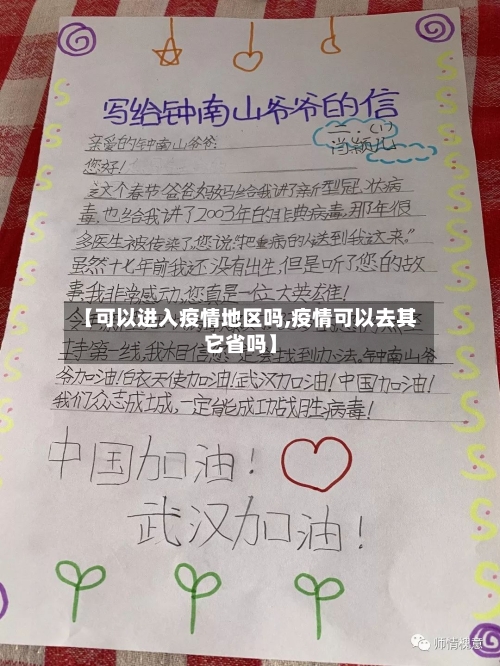 写给钟南山爷爷的信
二.(1)
肖颖儿
亲爱的钟南山爷爷:
您好!
这个春节爸爸妈妈给我讲了新型冠状病
毒,也给我讲了2003年的非典病毒,那年很
多医生被传染了,您说:“把重病的人送到我这来。”
虽然十七年前我还没有出生,但是听了您的故
事,我非常感动,您真是一位大英雄!
【可以进入疫情地区吗,疫情可以去其
它省吗】
第一线,我相信您一定会找到办法。钟南山爷
爷加油!白衣天使加油!武汉加油!中国加油!
我们众志成城,一定能成功战胜病毒!
中国加油!
武汉加油!
师情槐意